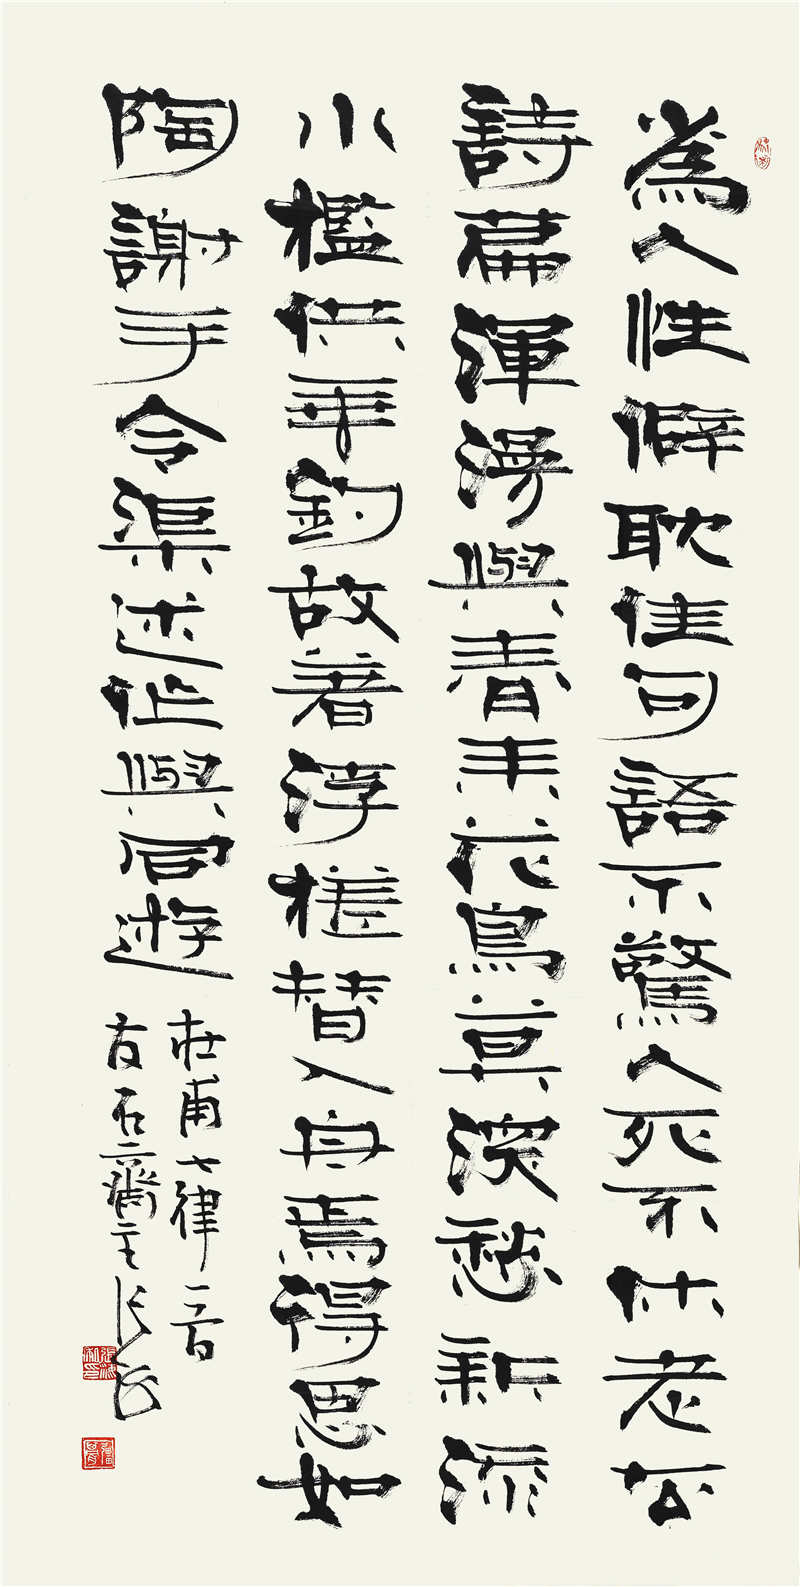 為人性僻耽佳句語不驚人死不休老去
詩篇渾漫與春來花鳥莫深愁新添
水檻供垂釣故著浮槎替入舟焉得思如
陶謝手令渠述作與同遊
杜甫七律一首
友石齋主張海